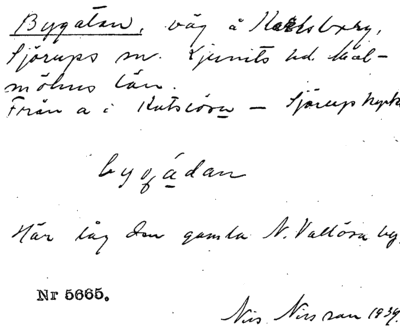 Bygatan, väg å Karlsborg,
Sjörups sn. Ljunits hd. Mal-
möhus län.
Från a i Katslösa – Sjörups kyrka
bygádan
Här låg den gamla N. Vallösa by.
Nr 5665.
Nils Nilsson 1939.